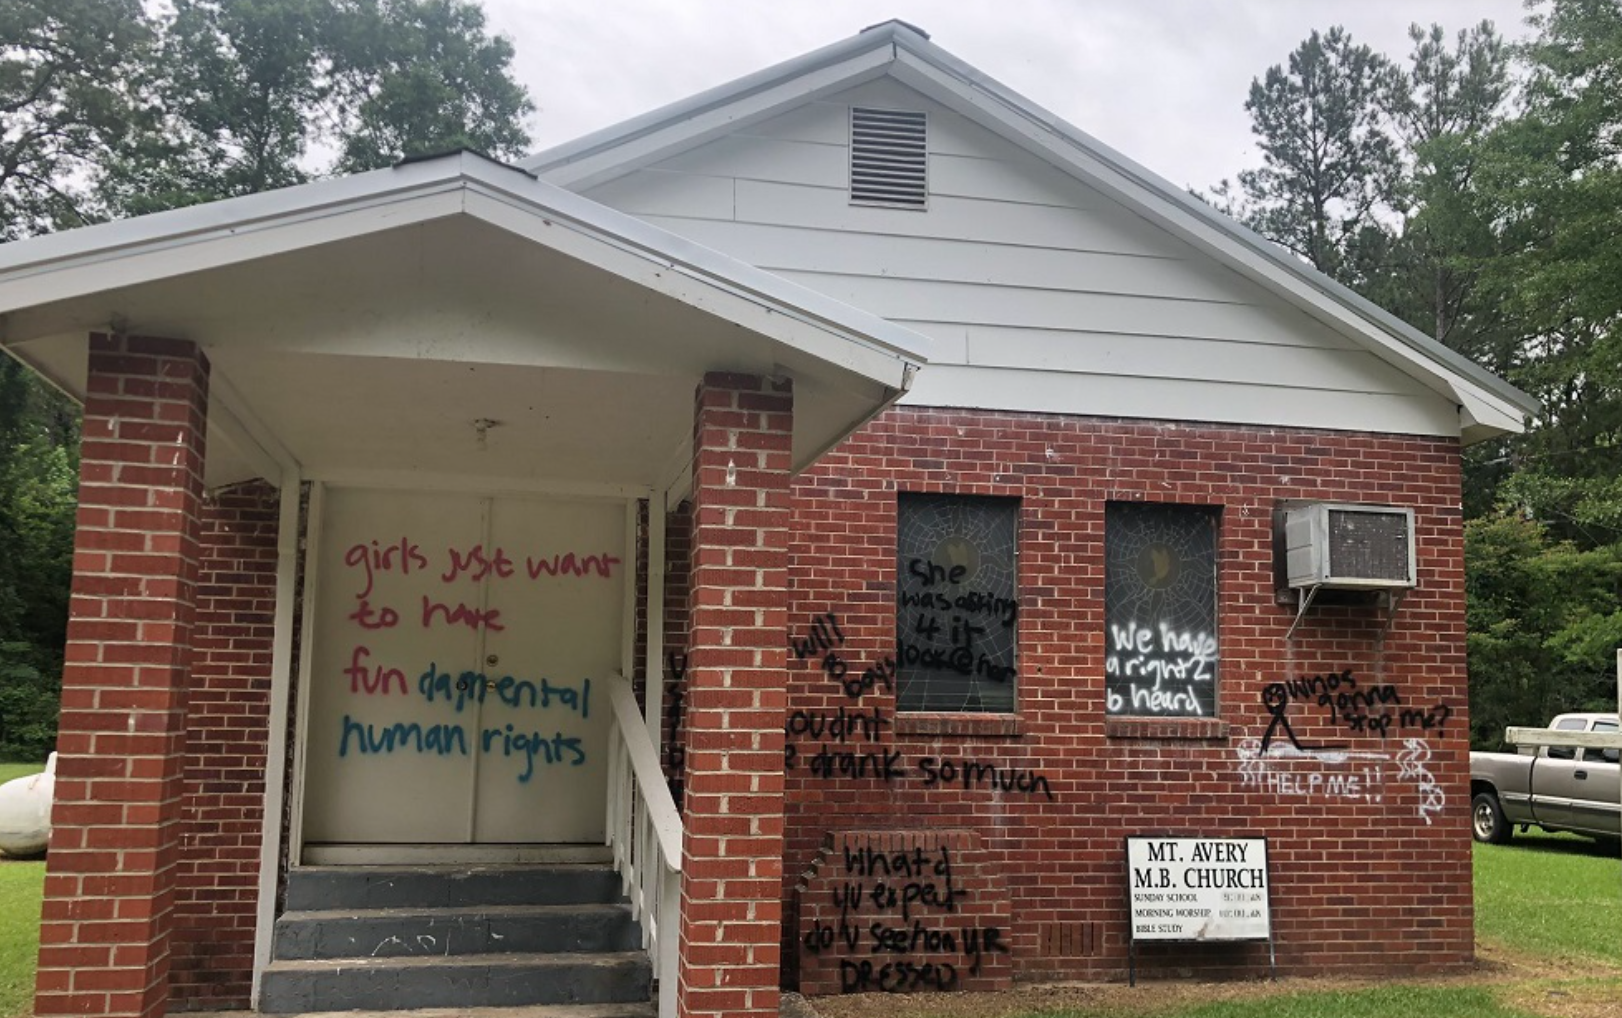 girls just want
to have
fun damental
human rights
will
boys
oudnt
e drank so much
She
was asking
4 it
look@her
we have
a right 2
b heard
whos
gonna
stop me?
HELP ME!!
What'd
yu expect
do u see hou yr
DRESSED
MT. AVERY
M.B. CHURCH
SUNDAY SCHOOL
MORNING WORSHIP
BIBLE STUDY